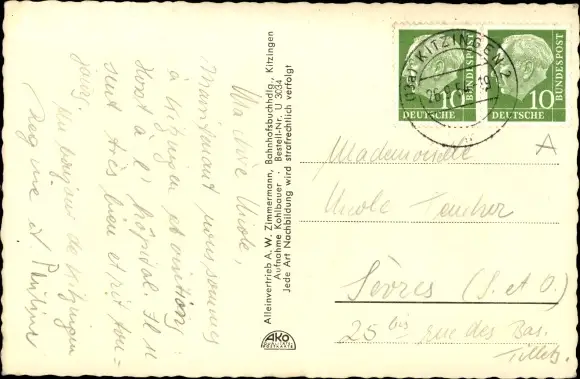 Ma chère Nicole,
Maintenant nous sommes
à Kitzingen et visitions
Horst à l'hôpital. Il se
sent très bien et rit tou=
jours.
Un bonjour de Kitzingen
Regine et Pauline
Alleinvertrieb A. W. Zimmermann, Bahnhofsbuchhdlg., Kitzingen
Aufnahme Kohlbauer · Bestell-Nr. U 3034
Jede Art Nachbildung wird strafrechtlich verfolgt
AKO
(13a) KITZINGEN 2
10
DEUTSCHE
BUNDESPOST
10
DEUTSCHE
BUNDESPOST
A
Mademoiselle
Nicole
Sèvres (S. et O.)
25 bis rue des Bas.